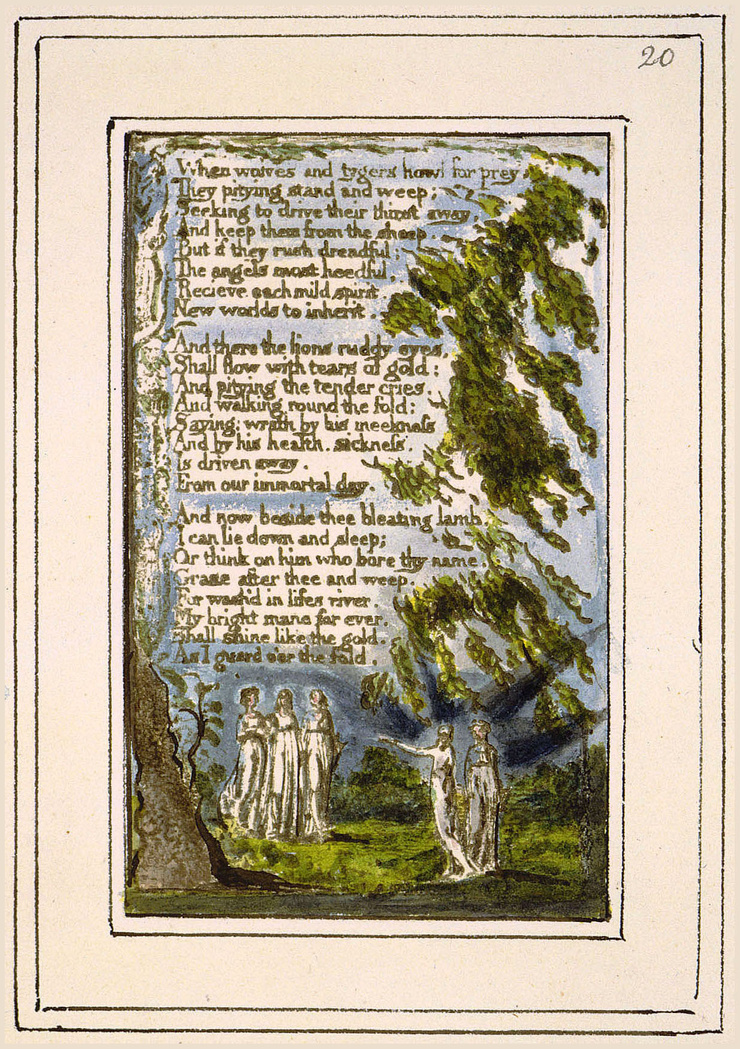 20
When wolves and tygers howl for prey
They pitying stand and weep;
Seeking to drive their thirst away,
And keep them from the sheep.
But if they rush dreadful;
The angels most heedful,
Recieve each mild spirit
New worlds to inherit.
And there the lions ruddy eyes,
Shall flow with tears of gold:
And pitying the tender cries,
And walking round the fold:
Saying: wrath by his meekness
And by his health, sickness,
Is driven away,
From our immortal day.
And now beside thee bleating lamb,
I can lie down and sleep;
Or think on him who bore thy name,
Graze after thee and weep.
For wash'd in lifes river,
My bright mane for ever,
Shall shine like the gold,
As I guard o'er the fold.